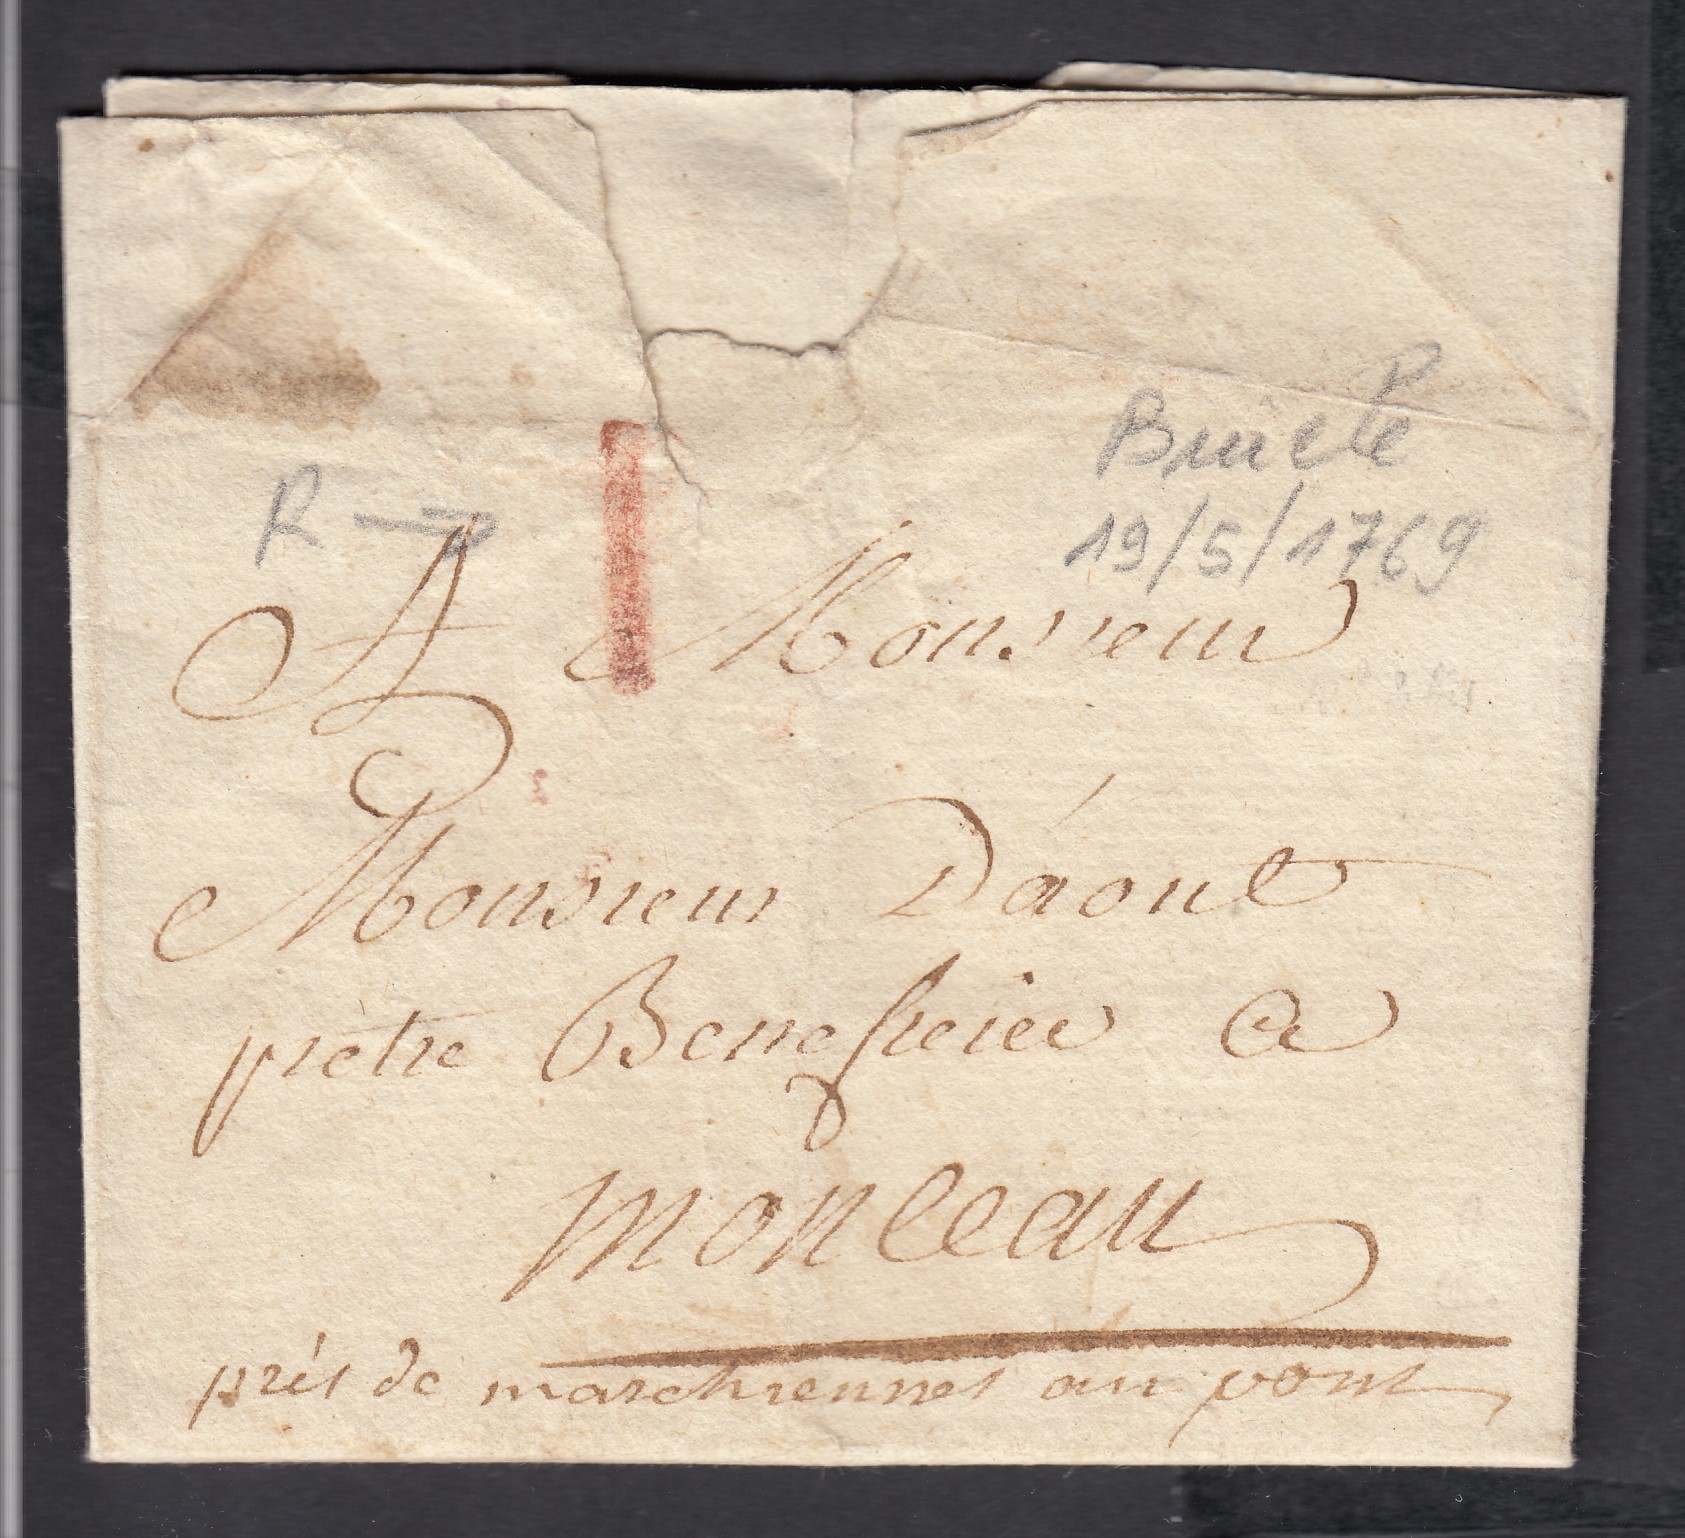 R →
19/5/1769
A Monsieur
Monsieur Dáout
prètre Beneficiér A
monceau
près de marchiennes au pont